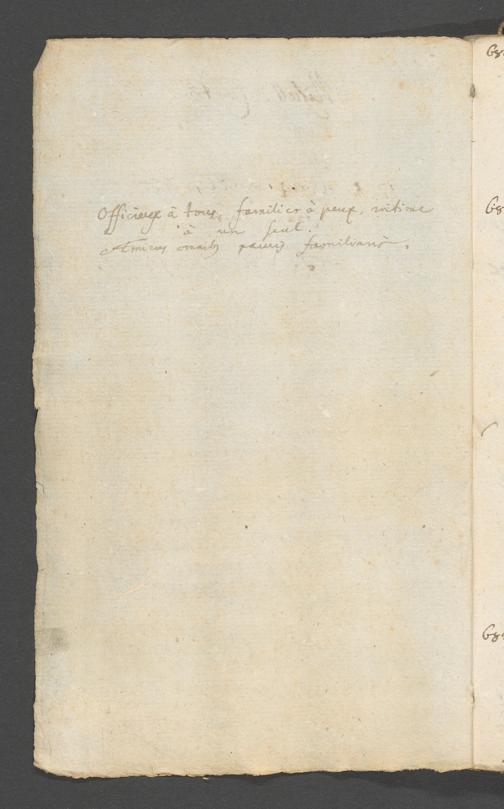 Officieux à tous, familier à peux, intime
à un seul.
Amicus omnib9 paucis familiaris.
68
68
68